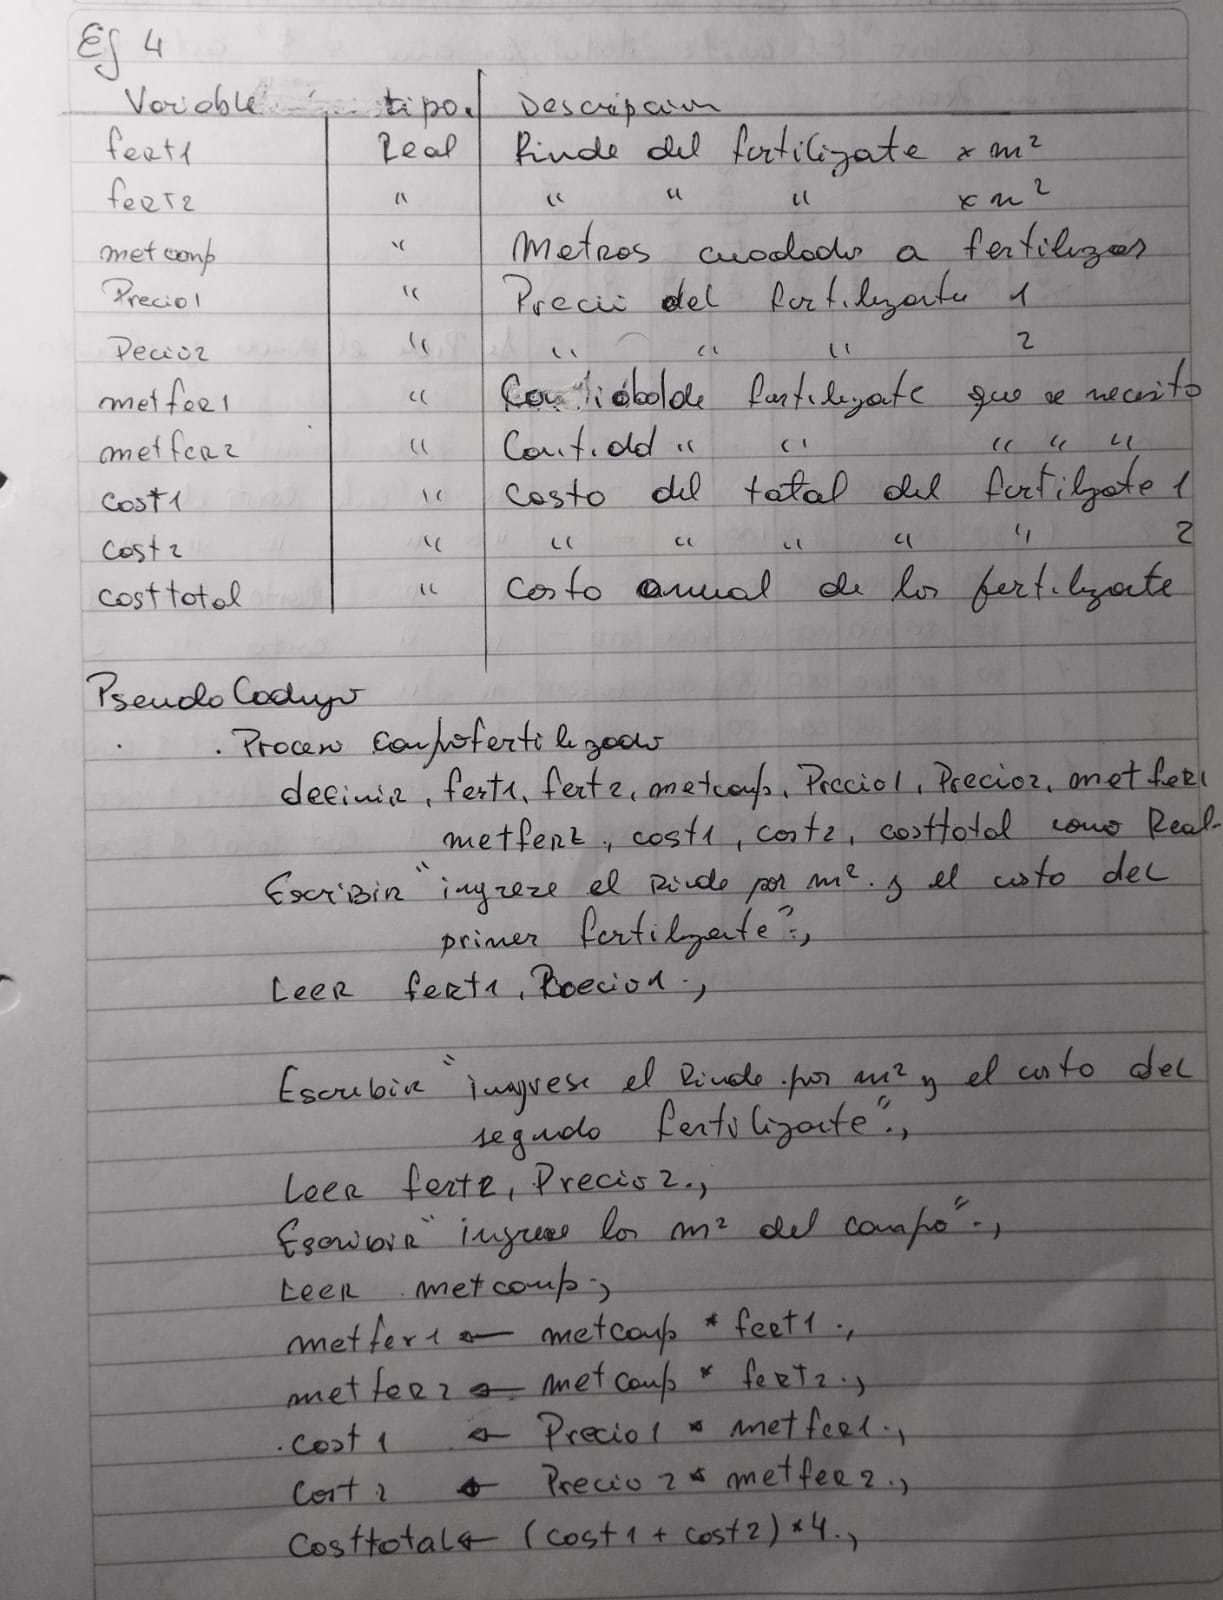 Ej 4
Variable tipo. Descripcion
fert1 Real Rinde del fertilizate x m²
fert2 " " " " x m²
metcamp " Metros cuadado a fertilizar
Precio1 " Precio del fertilizante 1
Precio2 " " " " 2
metfer1 " Cantidad de fertilizate que se necesita
metfer2 " Cantidad " " " " "
cost1 " Costo del total del fertilizate 1
cost2 " " " " " " 2
costtotal " Costo anual de los fertilizate
PseudoCodigo
. Proceso campofertilizado
definir, fert1, fert2, metcamp, Precio1, Precio2, metfer1
metfer2, cost1, cost2, costtotal como Real.
Escribir "ingreze el Rinde por m². y el costo del
primer fertilizante".,
Leer fert1, Precio1.,
Escribir "ingrese el Rinde por m² y el costo del
segundo fertilizante".,
Leer fert2, Precio2.,
Escribir "ingrese los m² del campo".,
Leer metcamp.,
metfer1 ← metcamp * fert1.,
metfer2 ← metcamp * fert2.,
cost1 ← Precio1 * metfer1.,
cost2 ← Precio2 * metfer2.,
Costtotal ← (cost1 + cost2) *4.,